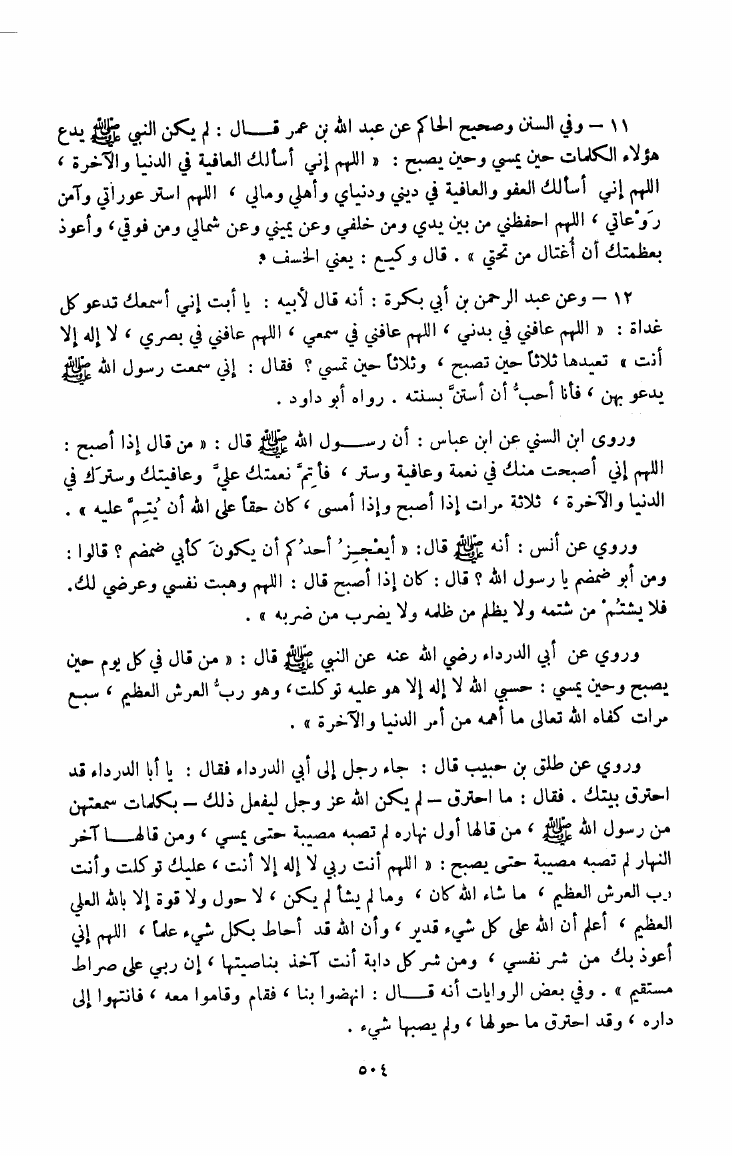 ١١ – وفي السنن وصحيح الحاكم عن عبد الله بن عمر قـــال : لم يكن النبي ﷺ يدع
هؤلاء الكلمات حين يمسي وحين يصبح : « اللهم إني أسألك العافية في الدنيا والآخرة ،
اللهم إني أسألك العفو والعافية في ديني ودنياي وأهلي ومالي ، اللهم استر عوراتي وآمن
رَوْعاتي ، اللهم احفظني من بين يدي ومن خلفي وعن يميني وعن شمالي ومن فوقي، وأعوذ
بعظمتك أن أُغتال من تحتي » . قال وكيع : يعني الخسف .
١٢ – وعن عبد الرحمن بن أبي بكرة : أنه قال لأبيه : يا أبت إني أسمعك تدعو كل
غداة : « اللهم عافني في بدني ، اللهم عافني في سمعي ، اللهم عافني في بصري ، لا إله إلا
أنت » تعيدها ثلاثاً حين تصبح ، وثلاثاً حين تمسي ؟ فقال : إني سمعت رسول الله ﷺ
يدعو بهن ، فأنا أحبُّ أن أستنَّ بسنته . رواه أبو داود .
وروى ابن السني عن ابن عباس : أن رســول الله ﷺ قال : « من قال إذا أصبح :
اللهم إني أصبحت منك في نعمة وعافية وستر ، فأتِمَّ نعمتك عليَّ وعافيتك وسترك في
الدنيا والآخرة ، ثلاثة مرات إذا أصبح وإذا أمسى ، كان حقاً على الله أن يُتِمَّ عليه » .
وروي عن أنس : أنه ﷺ قال: « أيعْجِزُ أحدُكم أن يكونَ كأبي ضمضم ؟ قالوا :
ومن أبو ضمضم يا رسول الله ؟ قال : كان إذا أصبح قال : اللهم وهبت نفسي وعرضي لك.
فلا يشتُمْ من شتمه ولا يظلم من ظلمه ولا يضرب من ضربه » .
وروي عن أبي الدرداء رضي الله عنه عن النبي ﷺ قال : « من قال في كل يوم حين
يصبح وحين يمسي : حسبي الله لا إله إلا هو عليه توكلت، وهو ربُّ العرش العظيم ، سبع
مرات كفاه الله تعالى ما أهمه من أمر الدنيا والآخرة » .
وروي عن طلق بن حبيب قال : جاء رجل إلى أبي الدرداء فقال : يا أبا الدرداء قد
احترق بيتك . فقال : ما احترق – لم يكن الله عز وجل ليفعل ذلك – بكلمات سمعتهن
من رسول الله ﷺ ، من قالها أول نهاره لم تصبه مصيبة حتى يمسي ، ومن قالهــا آخر
النهار لم تصبه مصيبة حتى يصبح : « اللهم أنت ربي لا إله إلا أنت ، عليك توكلت وأنت
رب العرش العظيم ، ما شاء الله كان ، وما لم يشأ لم يكن ، لا حول ولا قوة إلا بالله العلي
العظيم ، أعلم أن الله على كل شيء قدير ، وأن الله قد أحاط بكل شيء علماً ، اللهم إني
أعوذ بك من شر نفسي ، ومن شر كل دابة أنت آخذ بناصيتها ، إن ربي على صراط
مستقيم » . وفي بعض الروايات أنه قـــال : انهضوا بنا ، فقام وقاموا معه ، فانتهوا إلى
داره ، وقد احترق ما حولها ، ولم يصبها شيء .
٥٠٤